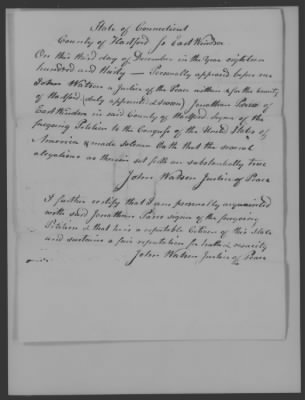 State of Connecticut
County of Hartford ss East Windsor
On this third day of December in the year eighteen
hundred and thirty — Personally appeared before me
John Watson a Justice of the Peace within & for the County
of Hartford (duly appointed & sworn) Jonathan Pasco of
East Windsor in said County of Hartford signer of the
foregoing Petition to the Congress of the United States of
America & made solemn Oath that the several
allegations as therein set forth are substantially true
John Watson Justice of Peace
I further certify that I am personally acquainted
with said Jonathan Pasco signer of the foregoing
Petition & that he is a reputable Citizen of this State
and sustains a fair reputation for truth & veracity
John Watson Justice of Peace